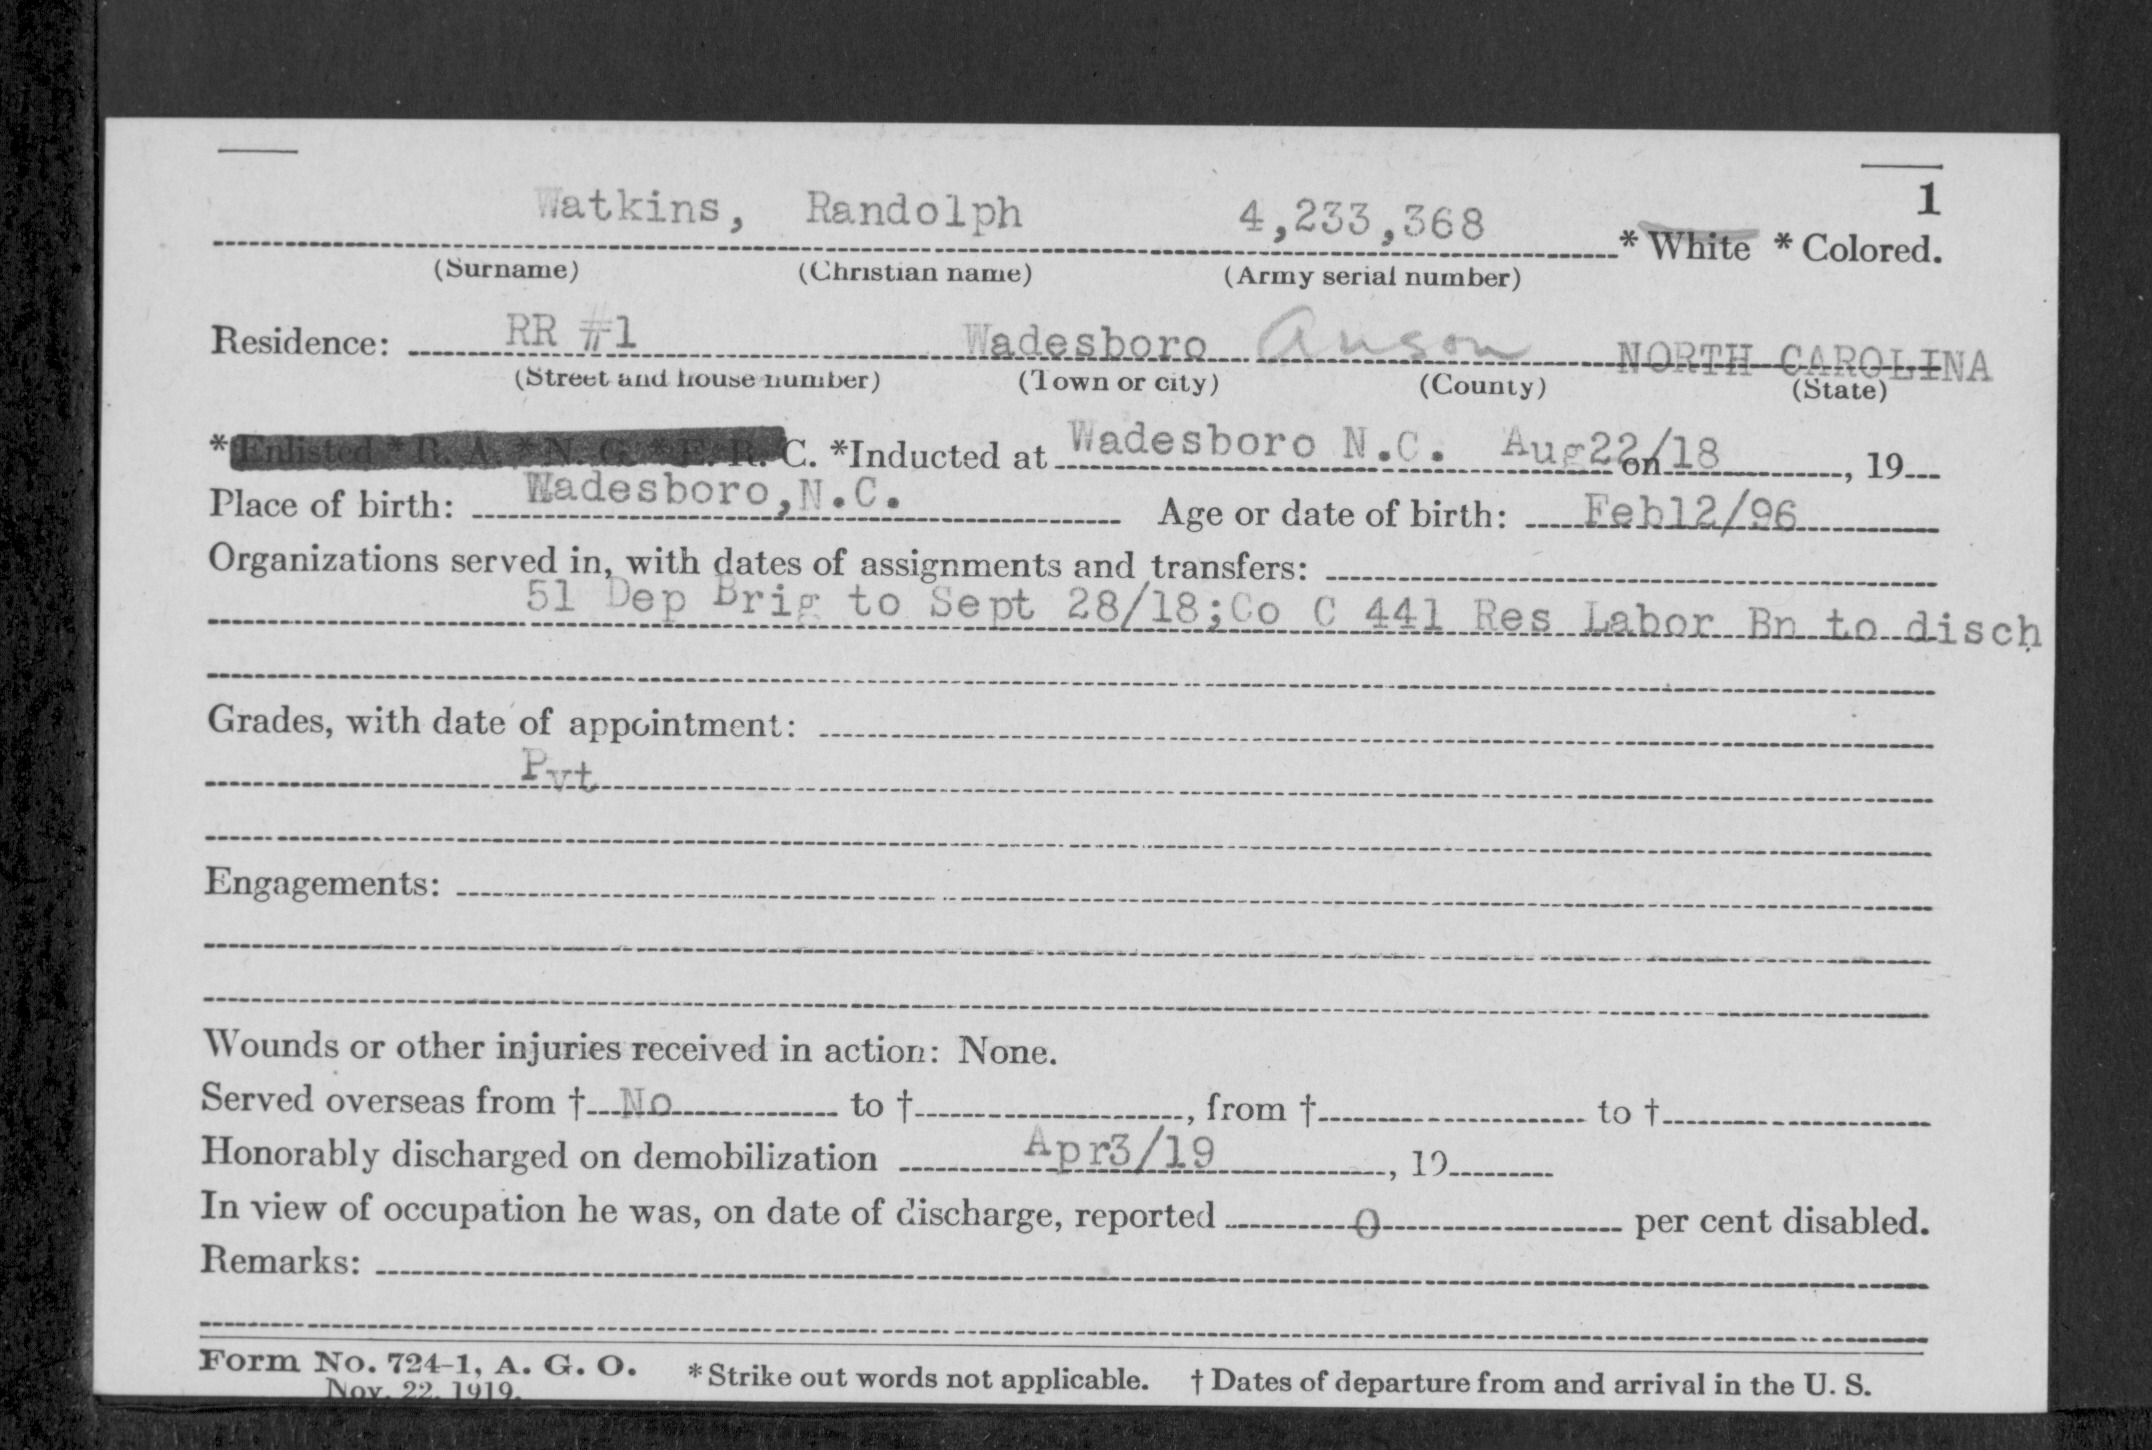 1
Watkins, Randolph 4,233,368 * White * Colored.
(Surname) (Christian name) (Army serial number)
Residence: RR #1 Wadesboro Anson NORTH CAROLINA
(Street and house number) (Town or city) (County) (State)
*Enlisted * R. A. * N. G. * E. R. C. *Inducted at Wadesboro N.C. Aug22/18 on , 19
Place of birth: Wadesboro,N.C. Age or date of birth: Feb12/96
Organizations served in, with dates of assignments and transfers:
51 Dep Brig to Sept 28/18;Co C 441 Res Labor Bn to disch
Grades, with date of appointment:
Pvt
Engagements:
Wounds or other injuries received in action: None.
Served overseas from † No to † , from † to †
Honorably discharged on demobilization Apr3/19 , 19
In view of occupation he was, on date of discharge, reported 0 per cent disabled.
Remarks:
Form No. 724-1, A. G. O. * Strike out words not applicable. † Dates of departure from and arrival in the U. S.
Nov. 22, 1919.